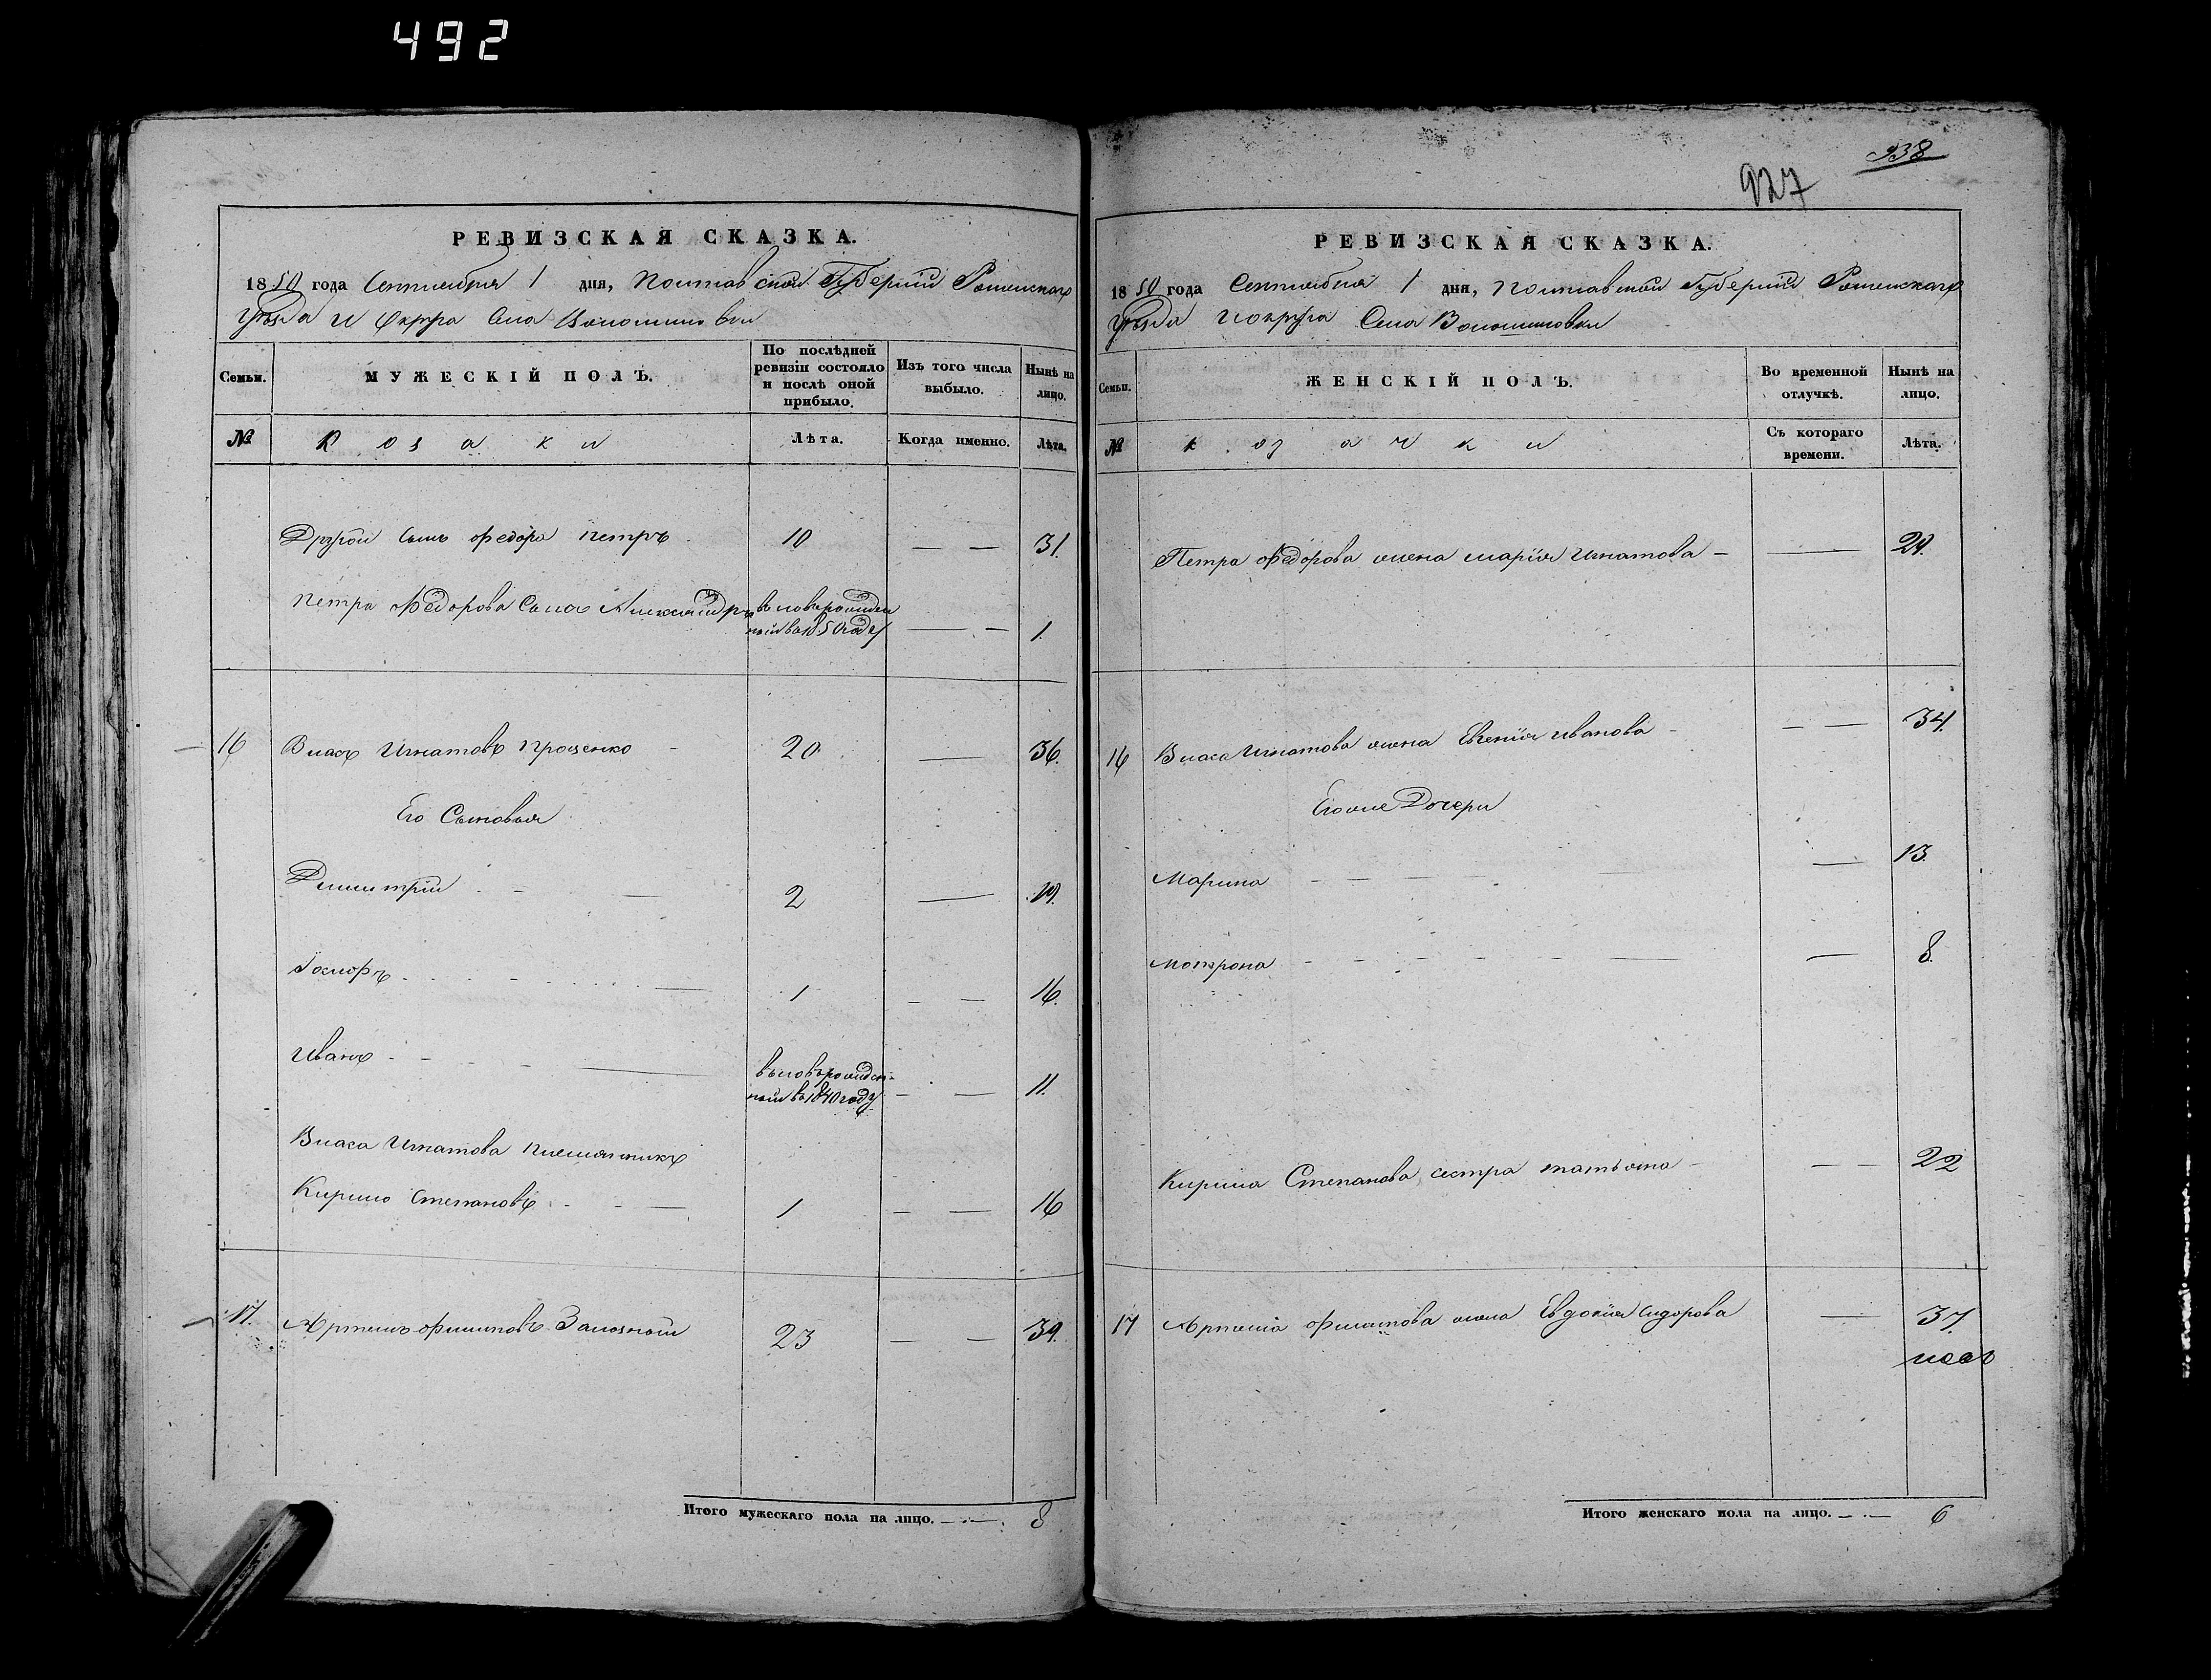 492
РЕВИЗСКАЯ СКАЗКА.
1850 года Сентября 1 дня, Полтавской Губерніи Роменскаго
Уѣзда и Округа Села Волошиновки
Семьи.
МУЖЕСКІЙ ПОЛЪ.
По послѣдней ревизіи состояло и послѣ оной прибыло.
Изъ того числа выбыло.
Нынѣ на лицо.
№
Козаки
Лѣта.
Когда именно.
Лѣта.
Другой сынъ Федора Петръ 10 — — 31.
Петра Федорова сынъ Александръ вновь рожден
ный въ 1850 году — — 1.
16 Власъ Игнатовъ Проценко - 20 — 36.
Его Сыновья
Димитрій - — 2 — 19.
Іосифъ - - — 1 — — 16.
Иванъ - - — вновь рожден-
ный въ 1840 году — — 11.
Власа Игнатова племянникъ
Кирило Степановъ - - — 1 — — 16
17. Артемъ Филиповъ Зализный 23 — — 39.
Итого мужескаго пола на лицо. — 8
938
927
РЕВИЗСКАЯ СКАЗКА.
1850 года Сентября 1 дня, Полтавской Губерніи Роменскаго
Уѣзда и округа Села Волошиновки
Семьи.
ЖЕНСКІЙ ПОЛЪ.
Во временной отлучкѣ.
Нынѣ на лицо.
№
козачки
Съ котораго времени.
Лѣта.
Петра Федорова жена Марія Игнатова — — 29.
16 Власа Игнатова жена Евгенія Иванова - — — 34.
Его же Дочери
Марина - — — — 13.
Мотрона - - - - - — — 8.
Кирила Степанова сестра татьяна - — — 22
17 Артема Филипова жена Евдокія Сидорова — 37.
Итого женскаго пола на лицо. — 6